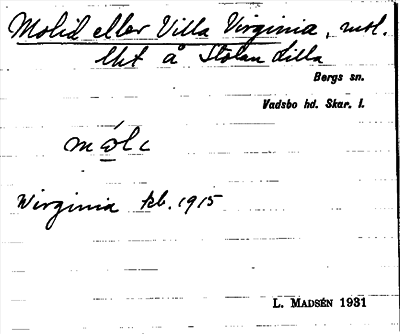 Molid eller Villa Virginia, utsl.
lht å Stolan Lilla
Bergs sn.
Vadsbo hd. Skar. l.
Wirginia kb. 1915
L. Madsén 1931